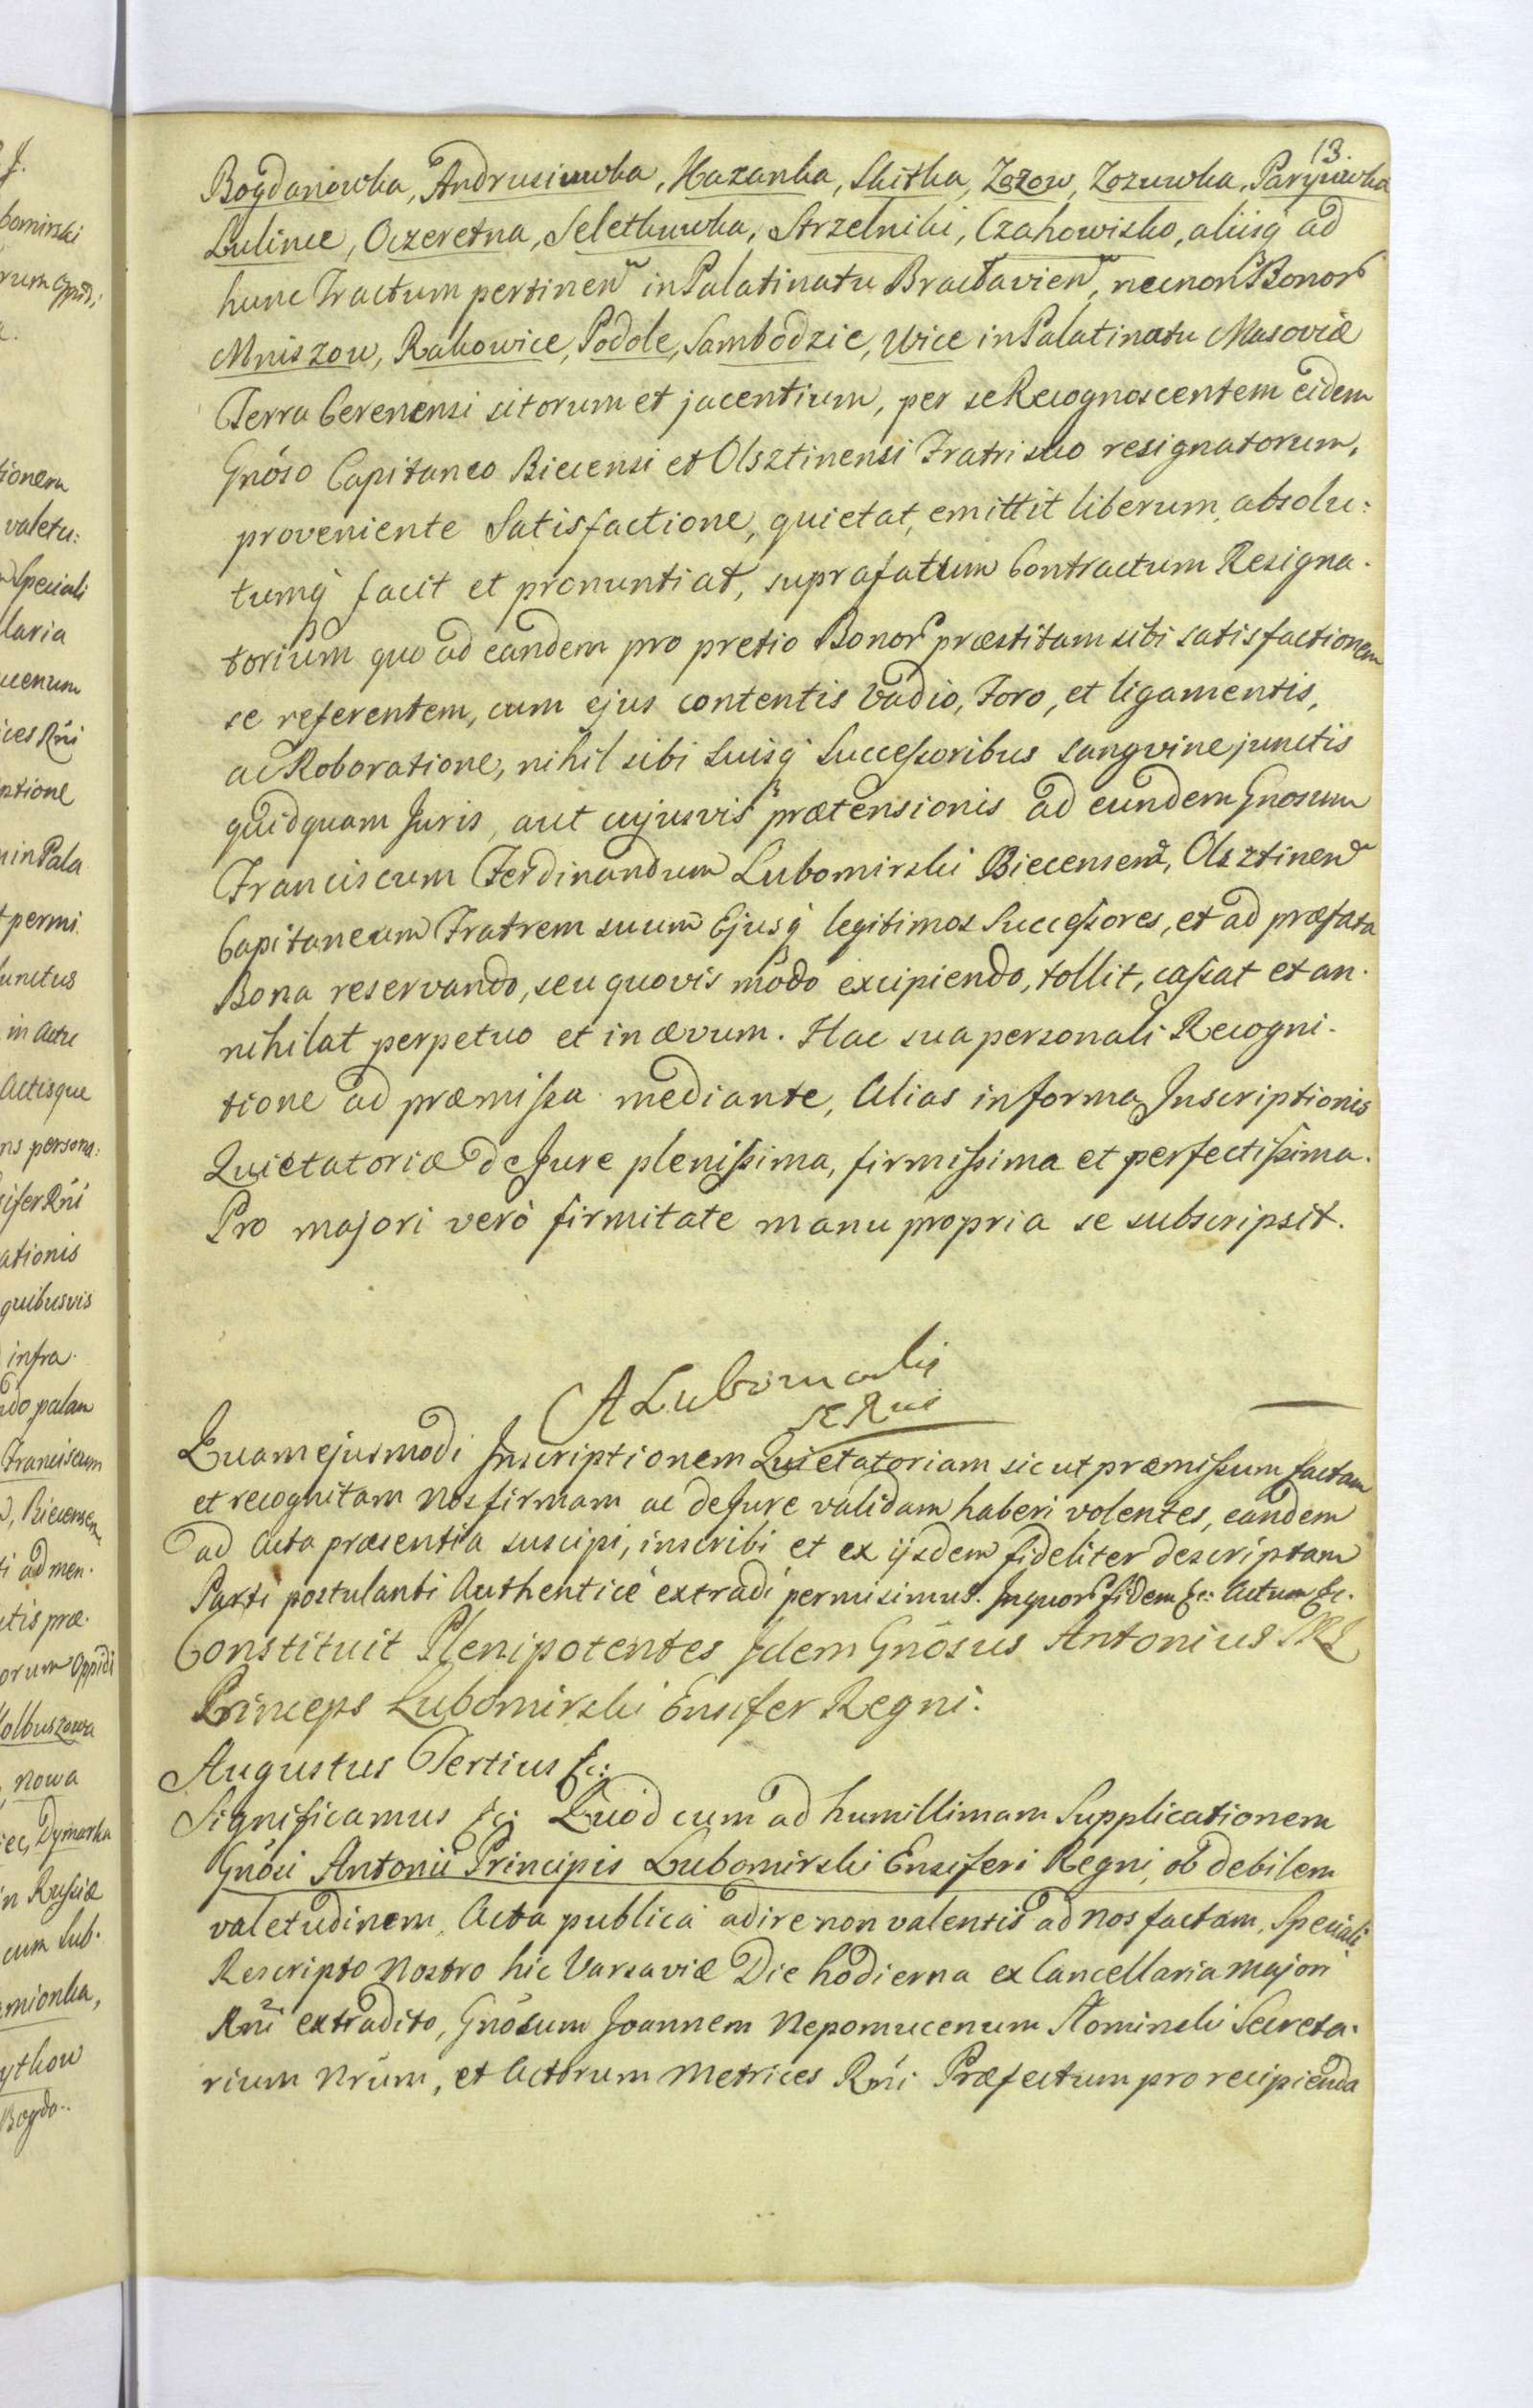 13.
Bogdanowka, Andrusiuwka, Kazanka, Skitka, Zozow, Zozuwka, Paryuwka
Lulince, Oczeretna, Selethuwka, Strzelniki, Czahowisko, aliisq ad
hunc Tractum pertinen in Palatinatu Braclavien, necnon Bonor
Mniszow, Rakowice, Podole, Sambodzie, Wice in Palatinatu Masoviæ
Terra Cerenensi sitorum et jacentium, per se Recognoscentem eidem
Gnōso Capitaneo Biecensi et Olsztinensi Fratri suo resignatorum,
proveniente Satisfactione, quietat, emittit liberum, absolu:
tumq facit et pronuntiat, suprafatum Contractum Resigna.
torium quo ad eandem pro pretio Bonor præstitam sibi satisfactionem
se referentem, cum ejus contentis Vadio, Foro, et ligamentis,
ac Roboratione, nihil sibi Suisq Successoribus Sangvine junctis
quidquam Juris, aut cujusvis prætensionis ad eundem Gnosum
Franciscum Ferdinandum Lubomirski Biecensem, Olsztinen
Capitaneum Fratrem suum Ejusq legitimos Successores, et ad præfata
Bona reservando, seu quovis modo excipiendo, tollit, cassat et an.
nihilat perpetuo et in ævum. Hac sua personali Recogni.
tione ad præmissa mediante, Alias in forma Inscriptionis
Quietatoriæ de Jure plenissima, firmissima et perfectissima.
Pro majori verò firmitate manu propria se subscripsit.
A Lubomirski
Quam ejusmodi Inscriptionem Quietatoriam sic ut præmissum factam
et recognitam Nos firmam ac de Jure validam haberi volentes, eandem
ad Acta præsentia suscipi, inscribi et ex ijsdem fideliter descriptam
Parti postulanti Authenticè extradi permisimus. In quor fidem &c: Actum &c.
Constituit Plenipotentes Idem Gnōsus Antonius SRI
Princeps Lubomirski Ensifer Regni.
Augustus Tertius &c:
Significamus &c: Quod cum ad humillimam Supplicationem
Gnōsi Antonii Principis Lubomirski Ensiferi Regni, ob debilem
valetudinem, Acta publica adire non valentis ad Nos factam, Speciali
Rescripto Nostro hic Varsaviæ Die hodierna ex Cancellaria Majori
Rni extradito, Gnōsum Joannem Nepomucenum Slominski Secreta.
rium Nrūm, et Actorum Metrices Rni Præfectum pro recipienda